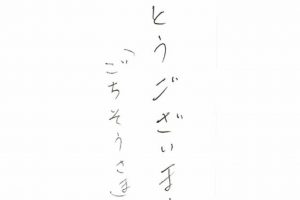 とうございま
（ごちそうさま）